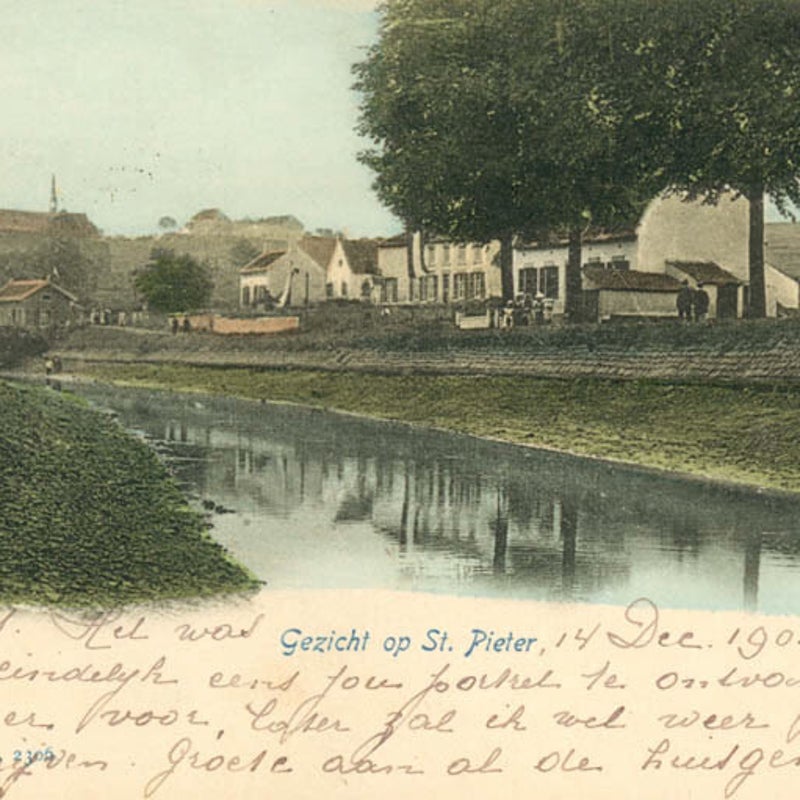 Het was Gezicht op St. Pieter, 14 Dec. 190
eindelyk eens jou portret te ontva
er voor, later zal ik wel weer
2306
yven. Groete aan al de huisgen